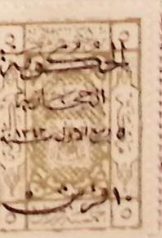 الحكومة
الحجازية
٥ ربيع الاول ١٣٤٣
١٠ قرش